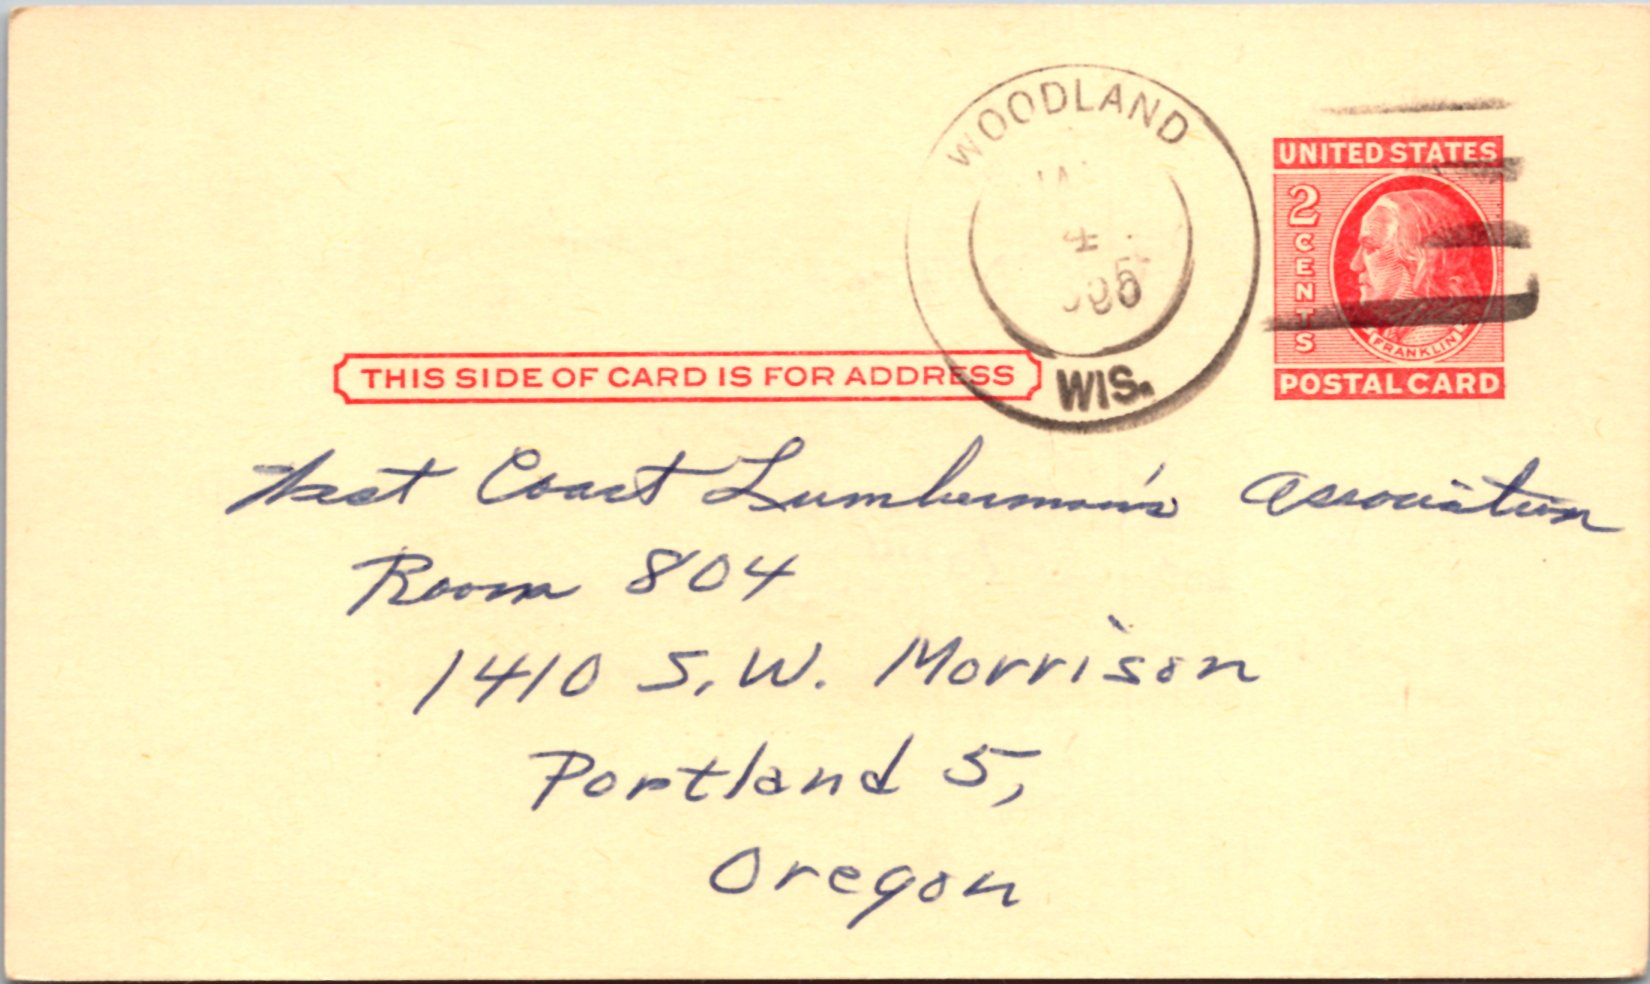 WOODLAND
4
WIS.
UNITED STATES
2 CENTS
FRANKLIN
POSTAL CARD
THIS SIDE OF CARD IS FOR ADDRESS
West Coast Lumberman's Association
Room 804
1410 S.W. Morrison
Portland 5,
Oregon